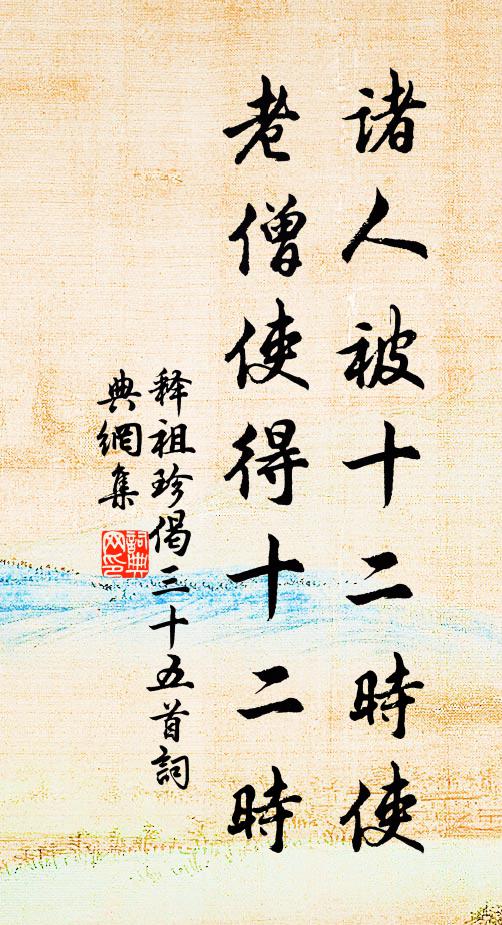 諸人被十二時使
老僧使得十二時
釋祖珍偈三十五首詞
典網集
詞典
网印